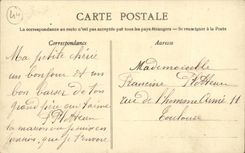 44
CARTE POSTALE
La correspondance au recto n'est pas acceptée par tous les pays étrangers — Se renseigner à la Poste
Correspondance
Adresse
Ma petite chérie
un bonjour et un
bon baiser de ton
grand père qui t'aime
la maison
que je t'envoie
Mademoiselle
Francine
rue de l'homme Armé 11
Toulouse